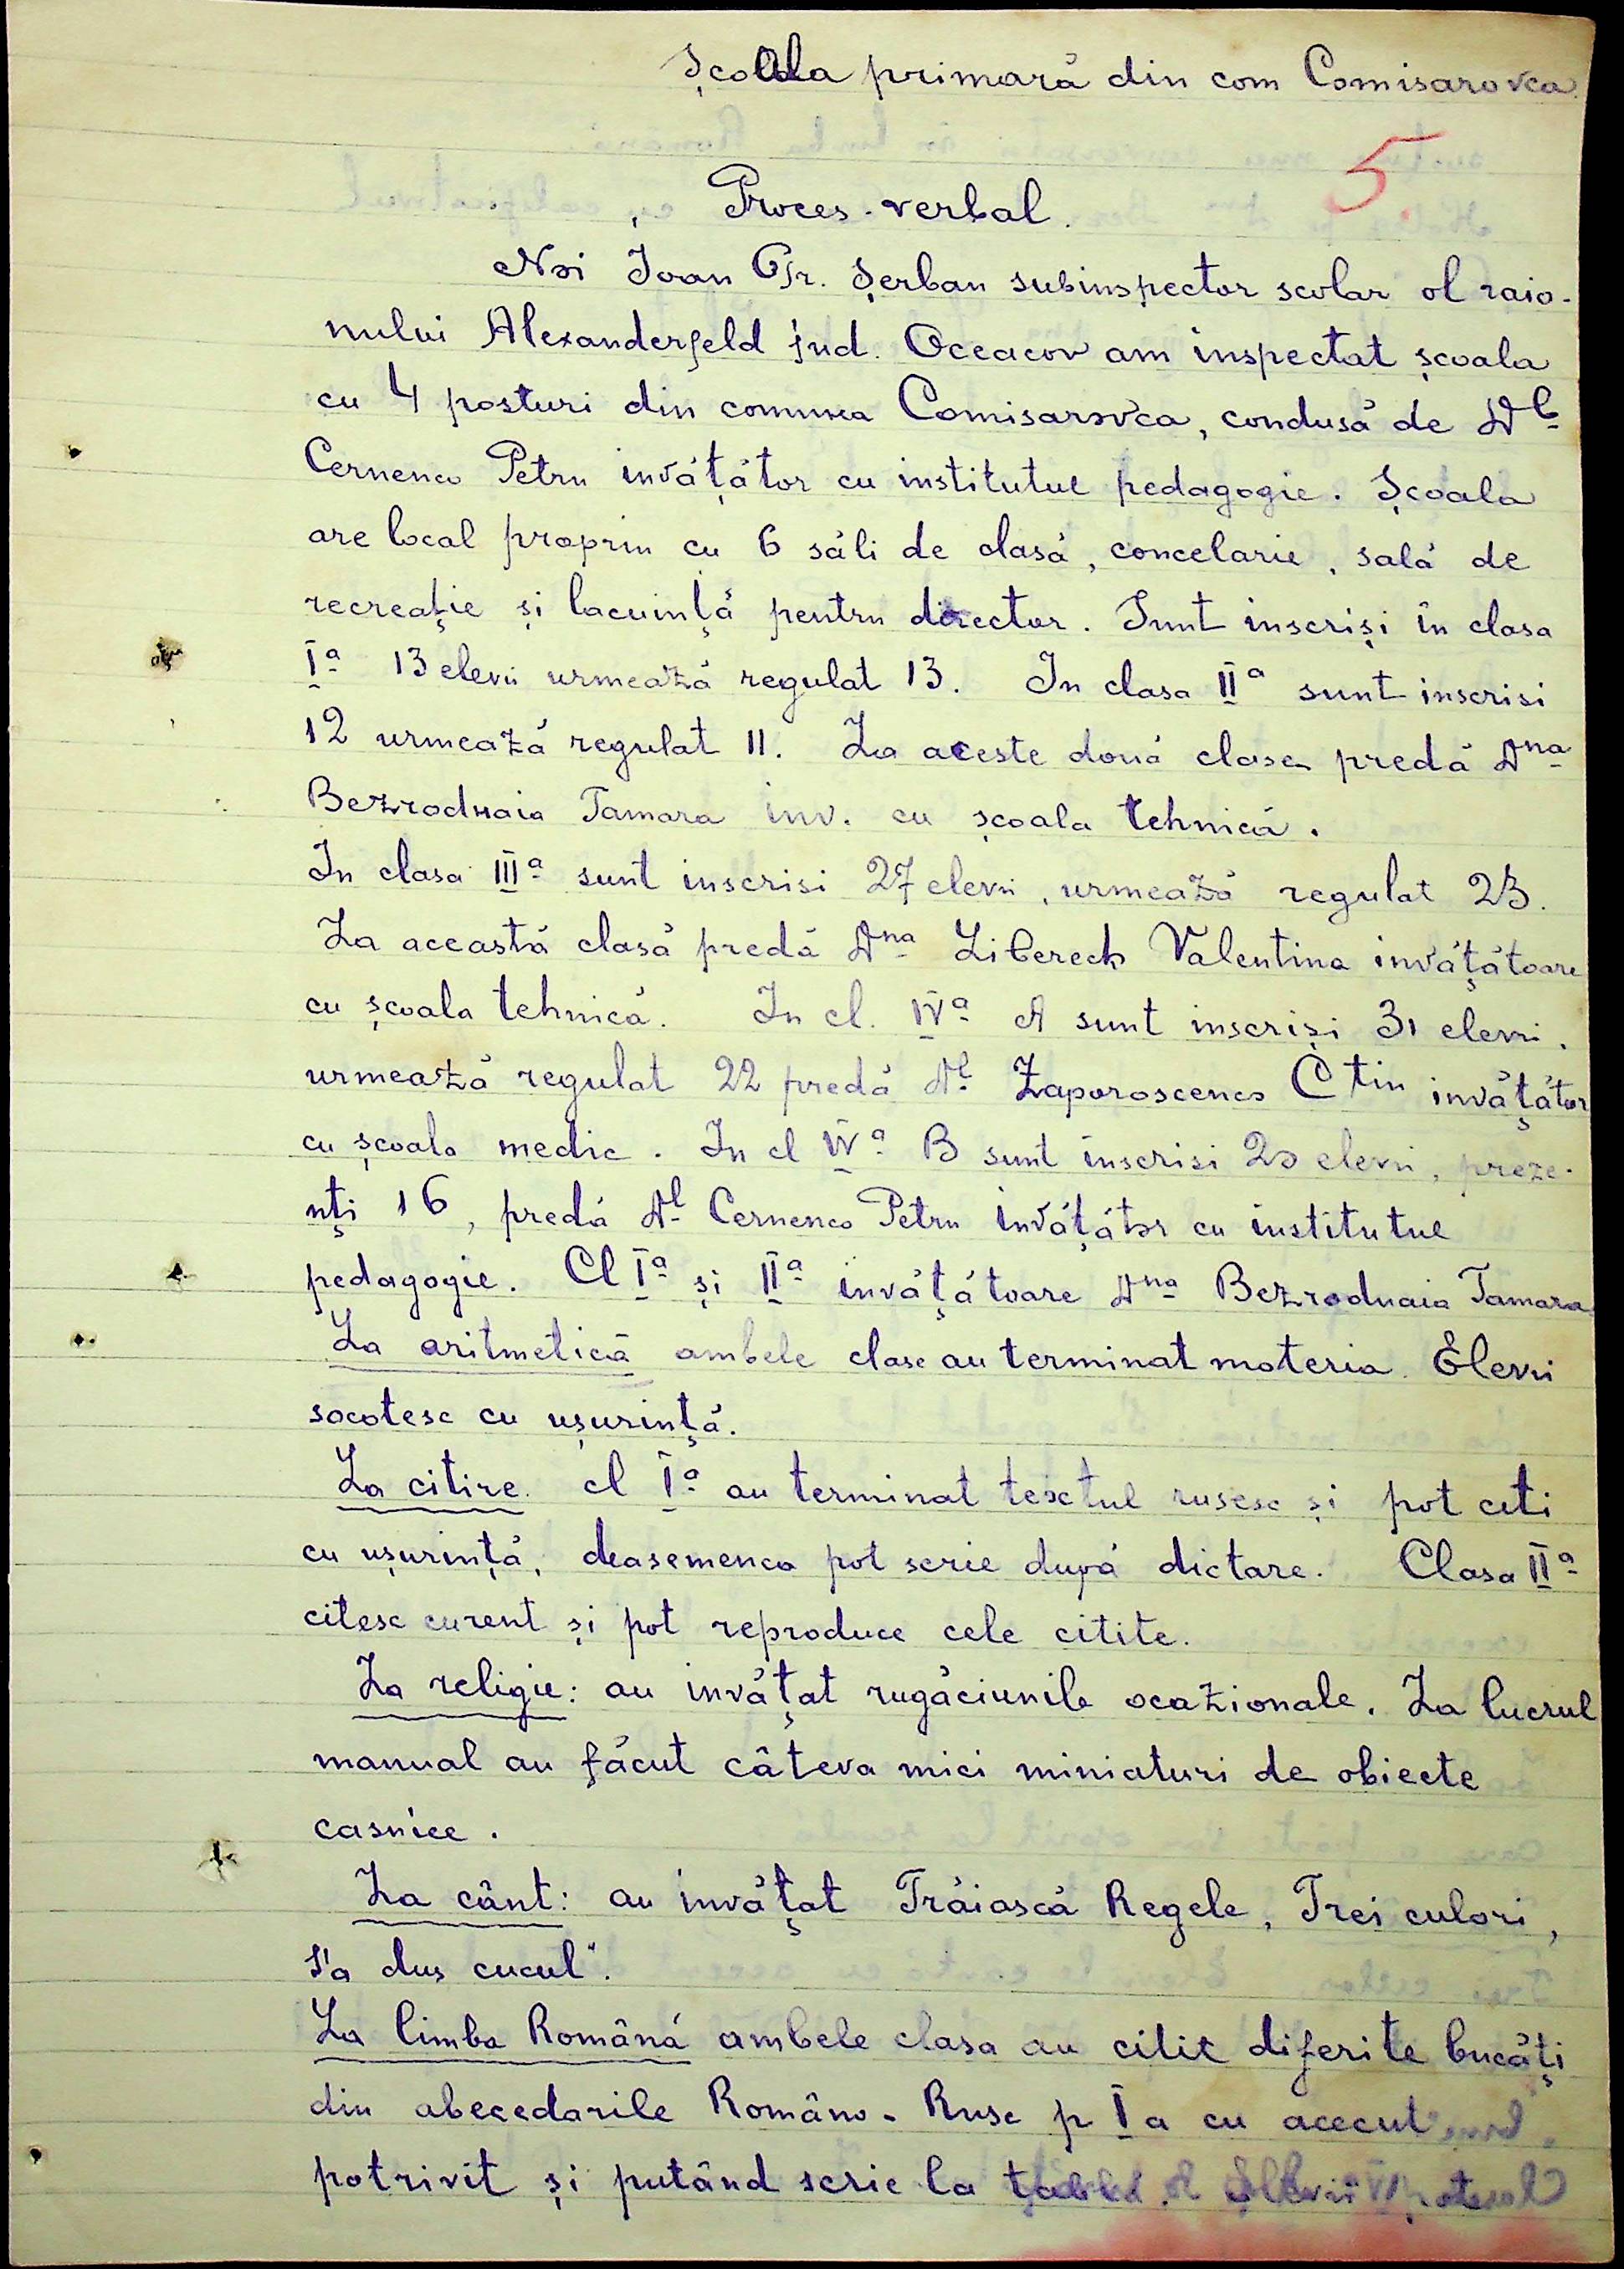 Școala primară din com Comisarovca
5
Proces-verbal.
Noi Ioan Gr. Șerban subinspector scolar al raio-
nului Alexanderfeld jud. Oceacov am inspectat școala
cu 4 posturi din comuna Comisarovca, condusă de Dl
Cernenco Petru invățător cu institutul pedagogic. Școala
are local propriu cu 6 săli de clasă, concelarie, sală de
recreație și lacuință pentru director. Sunt inscriși în clasa
Ia 13 elevii urmează regulat 13. In clasa IIa sunt inscrisi
12 urmează regulat 11. La aceste două clase predă Dna
Bezrodnaia Tamara inv. cu școala tehnică.
In clasa IIIa sunt inscrisi 27 elevii, urmează regulat 23.
La această clasă predă Dna Valentina invățătoare
cu școala tehnică. In cl. IVa A sunt inscriși 31 elevii,
urmează regulat 22 predă Dl Zaporoscenco Ctin invățător
cu școala medie. In cl IVa B sunt inscrisi 20 elevii, preze-
nți 16, predă Dl Cernenco Petru invățător cu institutul
pedagogic. Cl Ia și IIa invățătoare Dna Bezrodnaia Tamara
La aritmetică ambele clase au terminat materia. Elevii
socotesc cu ușurință.
La citire. cl Ia au terminat textul rusesc și pot citi
cu ușurință, deasemenea pot scrie după dictare. Clasa IIa
citesc curent și pot reproduce cele citite.
La religie: au invățat rugăciunile ocazionale. La lucrul
manual au făcut câteva mici miniaturi de obiecte
casnice.
La cânt: au invățat Trăiască Regele, Trei culori,
S'a dus cucul".
La limba Română ambele clasa au citit diferite bucăți
din abecedarile Româno-Rusc p Ia cu acecut
potrivit și putând scrie la tablă. Elevii